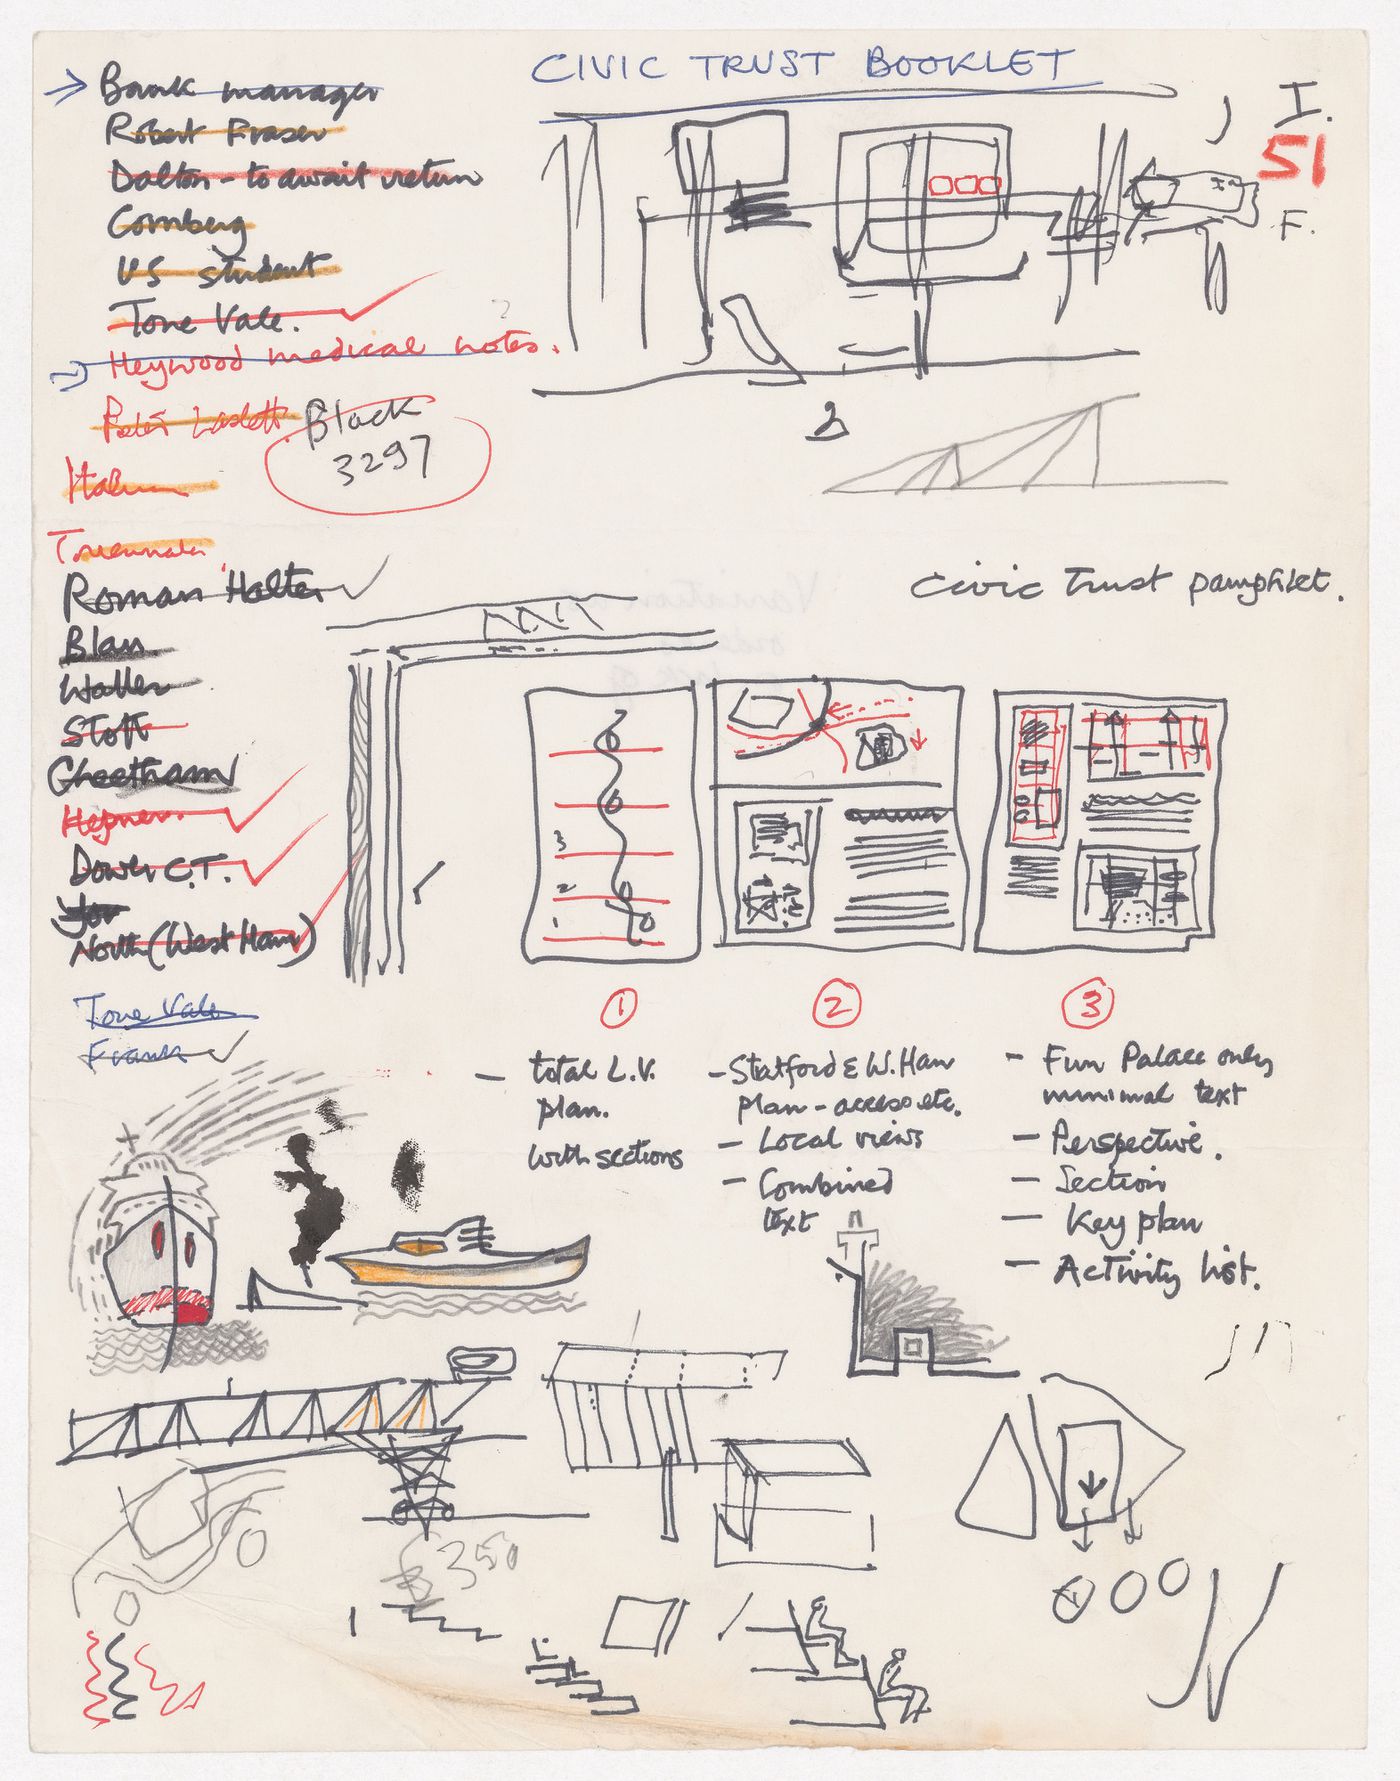 CIVIC TRUST BOOKLET
I.
51
F.
Bank manager
Robert Fraser
Dalton - to await return
Cornberg
US student
Tone Vale.
Heywood medical notes.
Peter Laslett
Black
3297
Roman Halter
Blan
Waller
Stott
Cheetham
Hepner.
Dower C.T.
North (West Ham)
Tone Vale
Frank
2
Civic Trust pamphlet.
3
2
1
1
2
3
- total L.V.
plan.
with sections
- Statford & W. Ham
plan - access etc.
- Local views
- Combined
text
- Fun Palace only
minimal text
- Perspective.
- Section
- Key plan
- Activity list.
£350